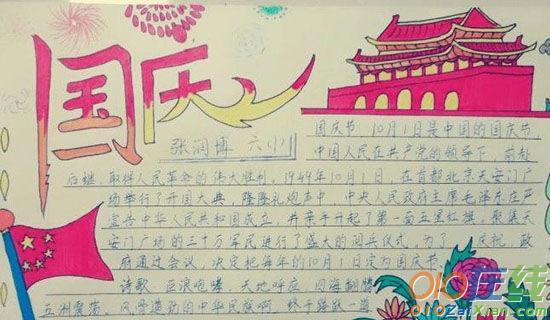 国庆
张润博 六(1)
国庆节，10月1日是中国的国庆节，
中国人民在共产党的领导下，前赴
后继，取得人民革命的伟大胜利，1949年10月1日，在首都北京天安门广
场举行了开国大典，隆隆礼炮声中，中央人民政府主席毛泽东庄严
宣告中华人民共和国成立，并亲手升起了第一面五星红旗，聚集天
安门广场的三十万军民进行了盛大的阅兵仪式，为了庆祝，政
府通过会议，决定把每年的10月1日定为国庆节。
诗歌，巨浪咆哮，天地呼应，四海翻腾
五洲震荡，风雪造就的中华民族啊，终于踏破一道
OiO在线
OiOZaiXian.com